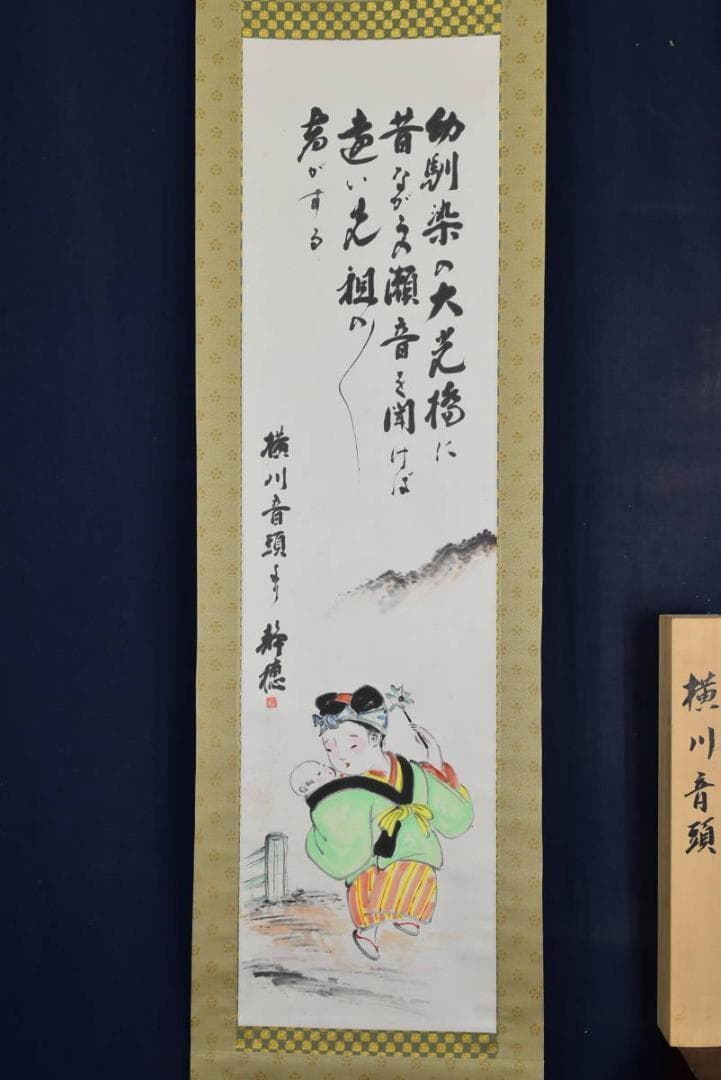 幼馴染の大光橋に
昔ながらの瀬音を聞けば
遠い先祖の
声がする
横川音頭より 静穂
横川音頭